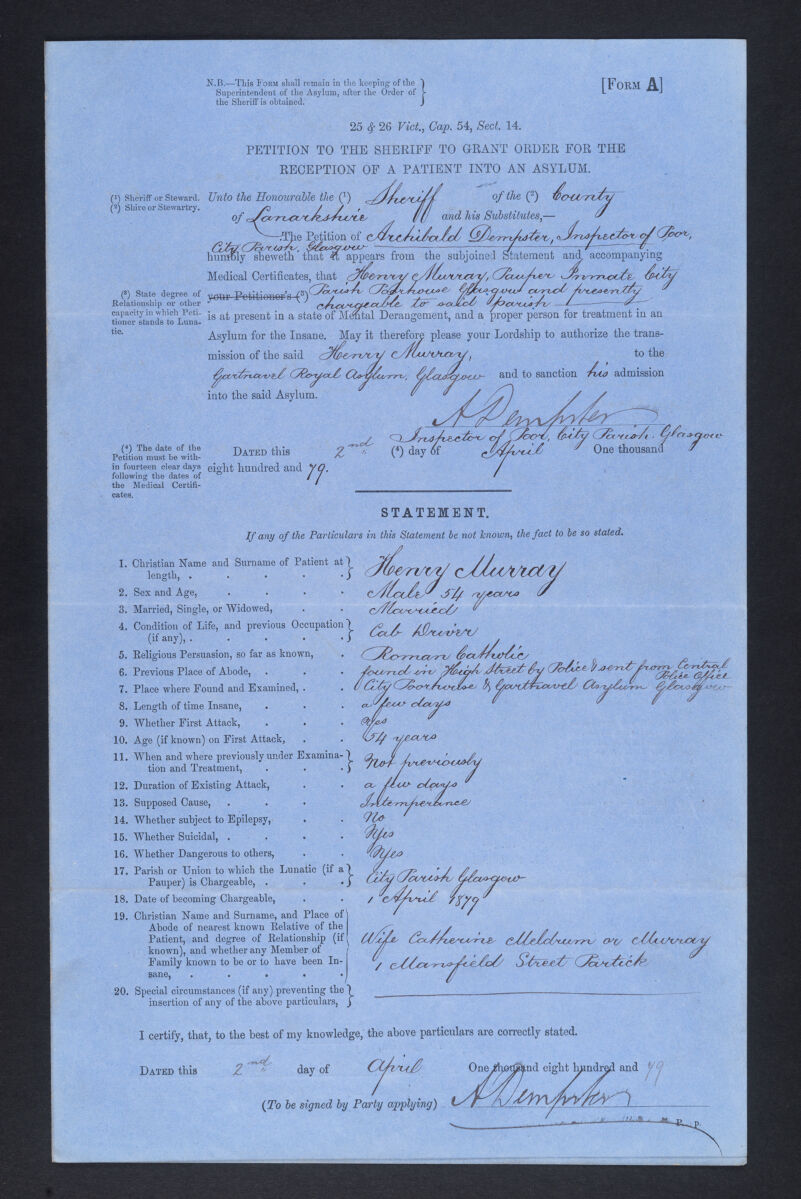 N.B.—This Form shall remain in the keeping of the
Superintendent of the Asylum, after the Order of
the Sheriff is obtained.
[Form A]
25 & 26 Vict., Cap. 54, Sect. 14.
PETITION TO THE SHERIFF TO GRANT ORDER FOR THE
RECEPTION OF A PATIENT INTO AN ASYLUM.
(¹) Sheriff or Steward.
(²) Shire or Stewartry.
Unto the Honourable the (¹) Sheriff of the (²) County
of Lanarkshire and his Substitutes,—
The Petition of Archibald Dempster, Inspector of Poor,
City Parish, Glasgow
humbly sheweth that it appears from the subjoined Statement and accompanying
Medical Certificates, that Henry Murray, Pauper Inmate City
(³) State degree of
Relationship or other
capacity in which Peti-
tioner stands to Luna-
tic.
your Petitioner's (³) Parish Poorhouse Glasgow and presently
chargeable to said parish
is at present in a state of Mental Derangement, and a proper person for treatment in an
Asylum for the Insane. May it therefore please your Lordship to authorize the trans-
mission of the said Henry Murray, to the
Gartnavel Royal Asylum, Glasgow and to sanction his admission
into the said Asylum.
A Dempster
Inspector of Poor, City Parish, Glasgow
(⁴) The date of the
Petition must be with-
in fourteen clear days
following the dates of
the Medical Certifi-
cates.
Dated this 2nd (⁴) day of April One thousand
eight hundred and 79.
STATEMENT.
If any of the Particulars in this Statement be not known, the fact to be so stated.
1. Christian Name and Surname of Patient at
length, . . . . . Henry Murray
2. Sex and Age, . . . . Male 54 years
3. Married, Single, or Widowed, . . Married
4. Condition of Life, and previous Occupation
(if any), . . . . . Cab Driver
5. Religious Persuasion, so far as known, . Roman Catholic
6. Previous Place of Abode, . . . found in High Street by Police & sent from Central
Police Office
7. Place where Found and Examined, . . City Poorhouse & Gartnavel Asylum Glasgow
8. Length of time Insane, . . . a few days
9. Whether First Attack, . . . Yes
10. Age (if known) on First Attack, . . 54 years
11. When and where previously under Examina-
tion and Treatment, . . . Not previously
12. Duration of Existing Attack, . . a few days
13. Supposed Cause, . . . . Intemperance
14. Whether subject to Epilepsy, . . No
15. Whether Suicidal, . . . . Yes
16. Whether Dangerous to others, . . Yes
17. Parish or Union to which the Lunatic (if a
Pauper) is Chargeable, . . . City Parish Glasgow
18. Date of becoming Chargeable, . . 1 April 1879
19. Christian Name and Surname, and Place of
Abode of nearest known Relative of the
Patient, and degree of Relationship (if
known), and whether any Member of
Family known to be or to have been In-
sane, . . . . .
Wife Catherine Meldrum or Murray
1 Mansfield Street Partick
20. Special circumstances (if any) preventing the
insertion of any of the above particulars,
I certify, that, to the best of my knowledge, the above particulars are correctly stated.
Dated this 2nd day of April One thousand eight hundred and 79
(To be signed by Party applying) A Dempster
P. P.